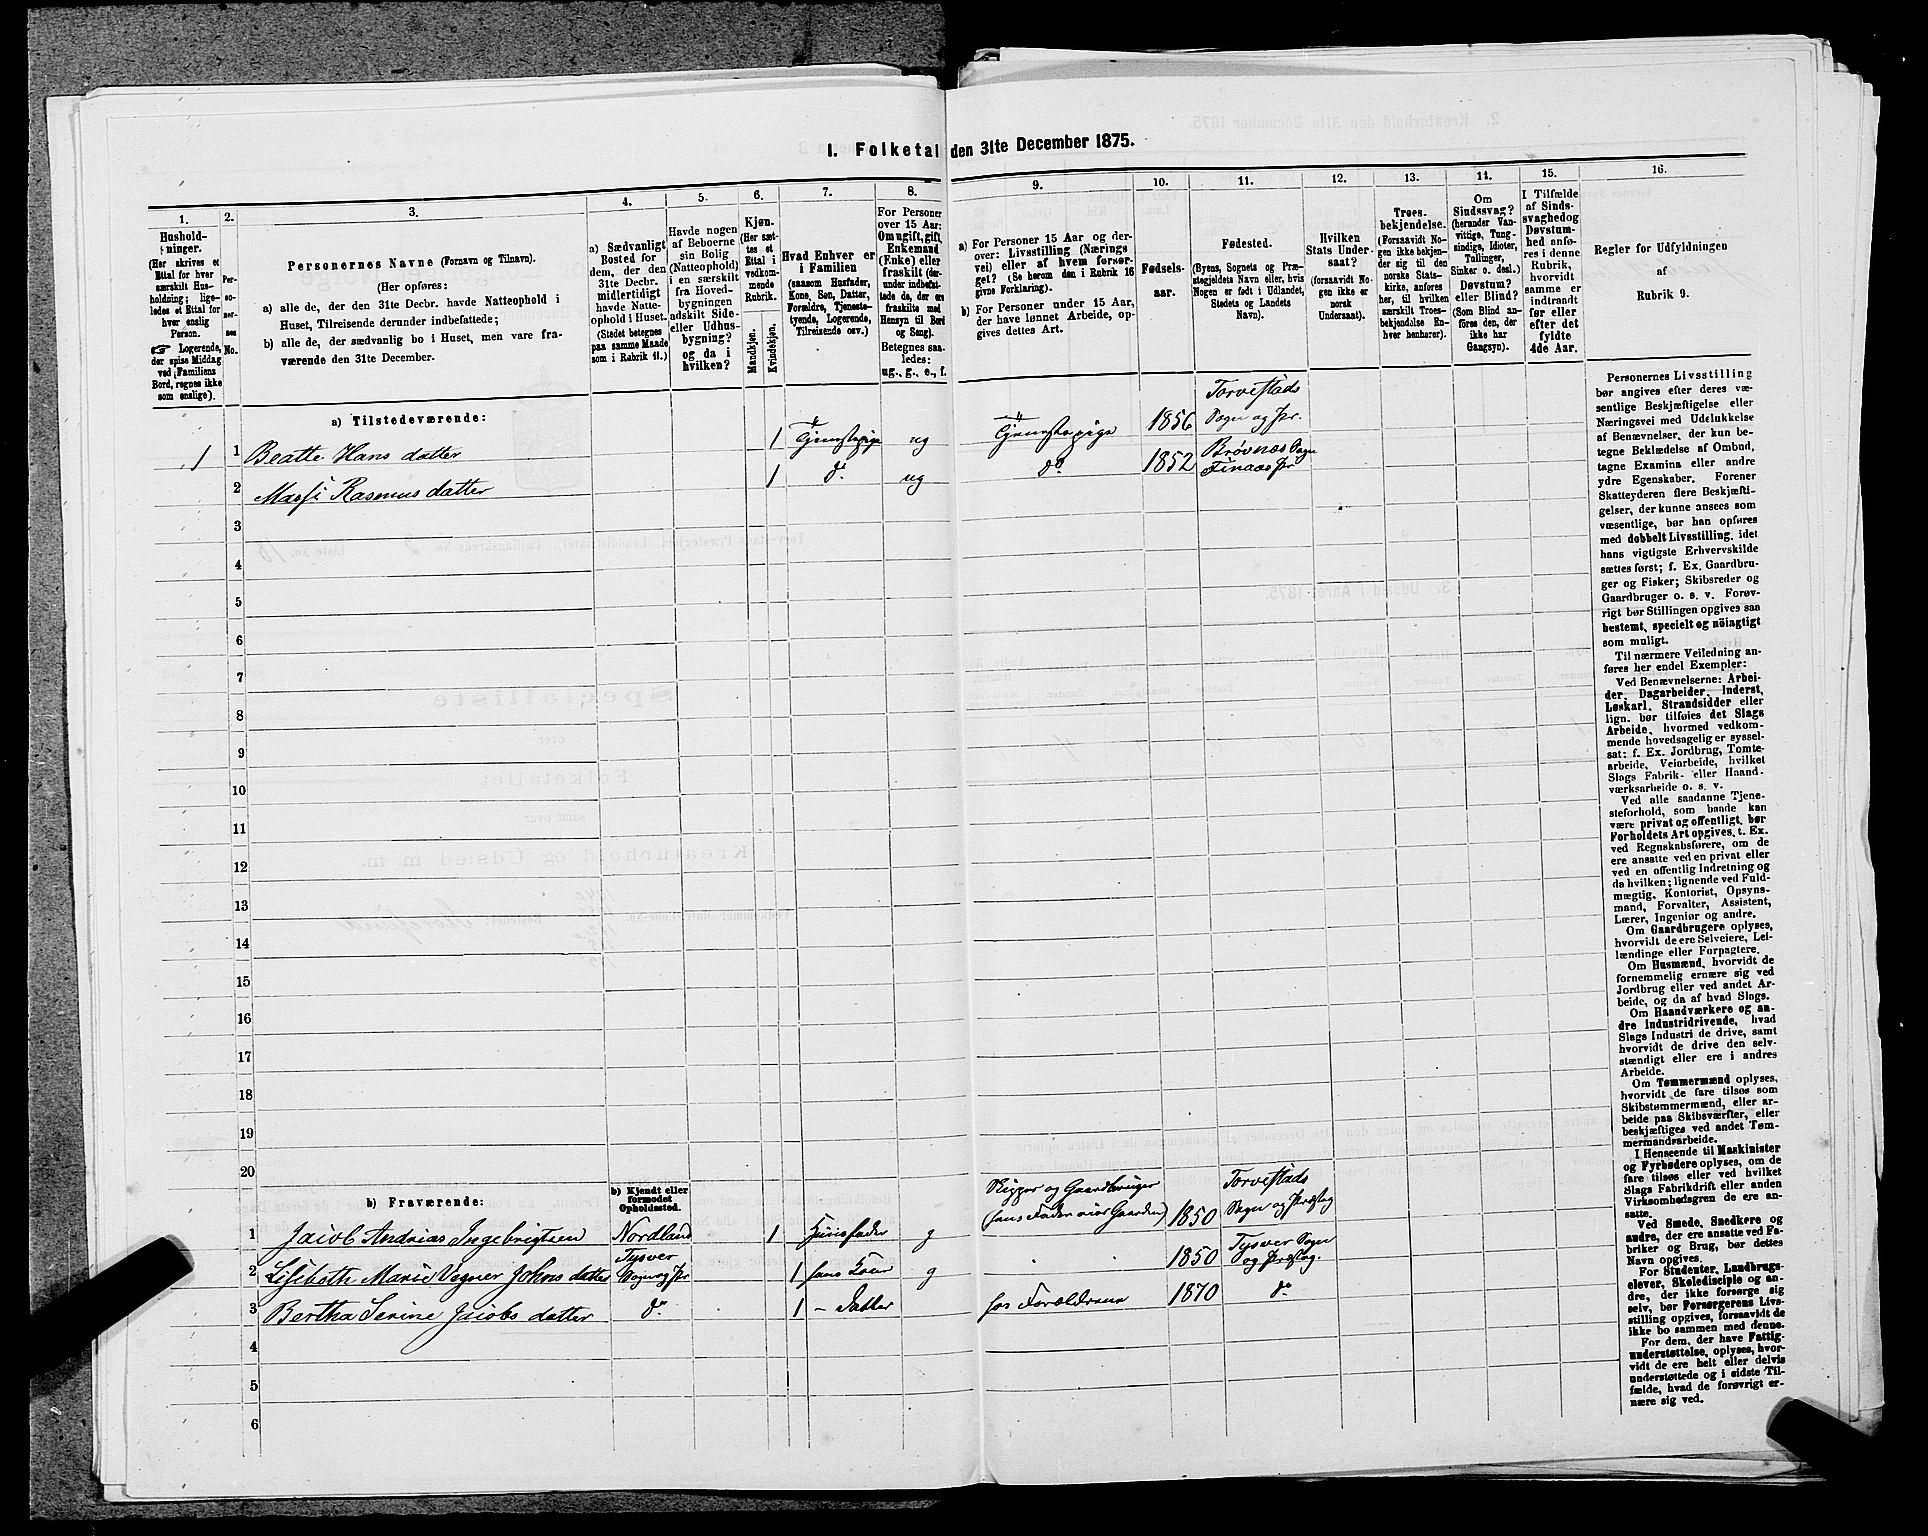 1. Folketal den 31te December 1875.
1.
2.
3.
4.
5.
6.
7.
8.
9.
10.
11.
12.
13.
14.
15.
16.
Hushold-
ninger.
(Her skrives et
Ettal for hver
særskilt Hus-
holdning; lige-
ledes et Ettal for
hver enslig
Person.
☞ Logerende,
der spise Middag
ved Familiens
Bord, regnes ikke
som enslige).
Per-
so-
ner-
nes
No.
Personernes Navne (Fornavn og Tilnavn).
(Her opføres:
a) alle de, der den 31te Decbr. havde Natteophold i
Huset, Tilreisende derunder indbefattede;
b) alle de, der sædvanlig bo i Huset, men vare fra-
værende den 31te December.
a) Sædvanligt
Bosted for
dem, der den
31te Decbr.
midlertidigt
havde Natte-
ophold i Huset.
(Stedet betegnes
paa samme Maade
som i Rubrik 11.)
Havde nogen
af Beboerne
sin Bolig
(Natteophold)
i en særskilt
fra Hoved-
bygningen
adskilt Side-
eller Udhus-
bygning?
og da i
hvilken?
Kjøn.
(Her sæt-
tes et
Ettal i
vedkom-
mende
Rubrik.
Mandkjøn.
Kvindekjøn.
Hvad Enhver er
i Familien
(saasom Husfader,
Kone, Søn, Datter,
Forældre, Tjeneste-
tyende, Logerende,
Tilreisende osv.)
For Personer
over 15 Aar:
Om ugift, gift,
Enkemand
(Enke) eller
fraskilt (der-
under indbefat-
tede de, der ere
fraskilte med
Hensyn til Bord
og Seng).
Betegnes saa-
ledes:
ug., g., e., f.
a) For Personer 15 Aar og der-
over: Livsstilling (Nærings
vei) eller af hvem forsør-
get? (Se herom den i Rubrik 16
givne Forklaring).
b) For Personer under 15 Aar,
der have lønnet Arbeide, op-
gives dettes Art.
Fødsels-
aar.
Fødested.
(Byens, Sognets og Præ-
stegjeldets Navn eller, hvis
Nogen er født i Udlandet,
Stedets og Landets
Navn).
Hvilken
Stats Under-
saat?
(forsaavidt No-
gen ikke er
norsk
Undersaat).
Troes-
bekjendelse.
(Forsaavidt No-
gen ikke bekjen-
der sig til den
norske Stats-
kirke, anføres
her, til hvilken
særskilt Troes-
bekjendelse En-
hver henhører).
Om
Sindssvag?
(herunder Van-
vittige, Tung-
sindige, Idioter,
Tallinger,
Sinker o. desl.)
Døvstum?
eller Blind?
(Som Blind an-
føres den, der
ikke har
Gangsyn).
I Tilfælde
af Sinds-
svaghed og
Døvstum-
hed anfø-
res i denne
Rubrik,
hvorvidt
samme er
indtraadt
før eller
efter det
fyldte
4de Aar.
Regler for Udfyldningen
af
Rubrik 9.
a) Tilstedeværende:
1 1 Beatte Hans datter 1 Tjenstepige ug Tjenstepige 1856 Torvestads
Sogn og Pr.
2 Massi Rasmus datter 1 do ug do 1852 Brøvnæs Sogn
Finaas Pr
3
4
5
6
7
8
9
10
11
12
13
14
15
16
17
18
19
20
b) Fraværende:
b) Kjendt eller
formodet
Opholdssted.
1 Jacob Andrias Ingebrigtsen Nordland 1 Huusfader g Skipper og Gaardbruger
(hans Fader eier Gaarden) 1850 Torvestads
Sogn og Præsteg
2 Lisibeth Marie Vegner Johns datter Tysver
Sogn og Pr 1 hans Kone g 1850 Tysver Sogn
og Præsteg.
3 Bertha Serine Jacobs datter do 1 - Datter hos Forældrene 1870 do
4
5
6
Personernes Livsstilling
bør angives efter deres væ-
sentlige Beskjæftigelse eller
Næringsvei med Udelukkelse
af Benævnelser, der kun be-
tegne Beklædelse af Ombud,
tagne Examina eller andre
ydre Egenskaber. Forener
Skatteyderen flere Beskjæfti-
gelser, der kunne ansees som
væsentlige, bør han opføres
med dobbelt Livsstilling, idet
hans vigtigste Erhvervskilde
sættes først; f. Ex. Gaardbru-
ger og Fisker; Skibsreder og
Gaardbruger o. s. v. Forøv-
rigt bør Stillingen opgives saa
bestemt, specielt og nöiagtigt
som muligt.
Til nærmere Veiledning an-
føres her endel Exempler:
Ved Benævnelserne: Arbei-
der, Dagarbeider, Inderst,
Løskarl, Strandsidder eller
lign. bør tilføies det Slags
Arbeide, hvormed vedkom-
mende hovedsagelig er syssel-
sat; f. Ex. Jordbrug, Tomte-
arbeide, Veiarbeide, hvilket
Slags Fabrik- eller Haand-
værksarbeide o. s. v.
Ved alle saadanne Tjene-
steforhold, som baade kan
være privat og offentligt, bør
Forholdets Art opgives, t. Ex.
ved Regnskabsførere, om de
ere ansatte ved en privat eller
ved en offentlig Indretning og
da hvilken; lignende ved Fuld-
mægtig, Kontorist, Opsyns-
mand, Forvalter, Assistent,
Lærer, Ingeniør og andre.
Om Gaardbrugere oplyses,
hvorvidt de ere Selveiere, Lei-
lændinge eller Forpagtere.
Om Husmænd, hvorvidt de
fornemmelig ernære sig ved
Jordbrug eller ved andet Ar-
beide, og da af hvad Slags.
Om Haandværkere og an-
dre Industridrivende, hvad
Slags Industri de drive, samt
hvorvidt de drive den selv-
stændigt eller ere i andres
Arbeide.
Om Tømmermænd oplyses,
hvorvidt de fare tilsøs som
Skibstømmermænd, eller ar-
beide paa Skibsværfter, eller
beskjæftiges ved andet Tøm-
mermandsarbeide.
I Henseende til Maskinister
og Fyrbødere oplyses, om de
fare tilsøs eller ved hvilket
Slags Fabrikdrift eller anden
Virksomhedsgren de ere an-
satte.
Ved Smede, Snedkere og
andre, der ere ansatte ved Fa-
briker og Brug, bør dettes
Navn opgives.
For Studenter, Landbrugs-
elever, Skoledisciple og an-
dre, der ikke forsørge sig
selv, bør Forsørgerens Livs-
stilling opgives, forsaavidt de
ikke bo sammen med denne.
For dem, der have Fattig-
understøttelse, oplyses, hvor-
vidt de ere helt eller delvis
understøttede og i sidste Til-
fælde, hvad de forøvrigt er-
nære sig ved.